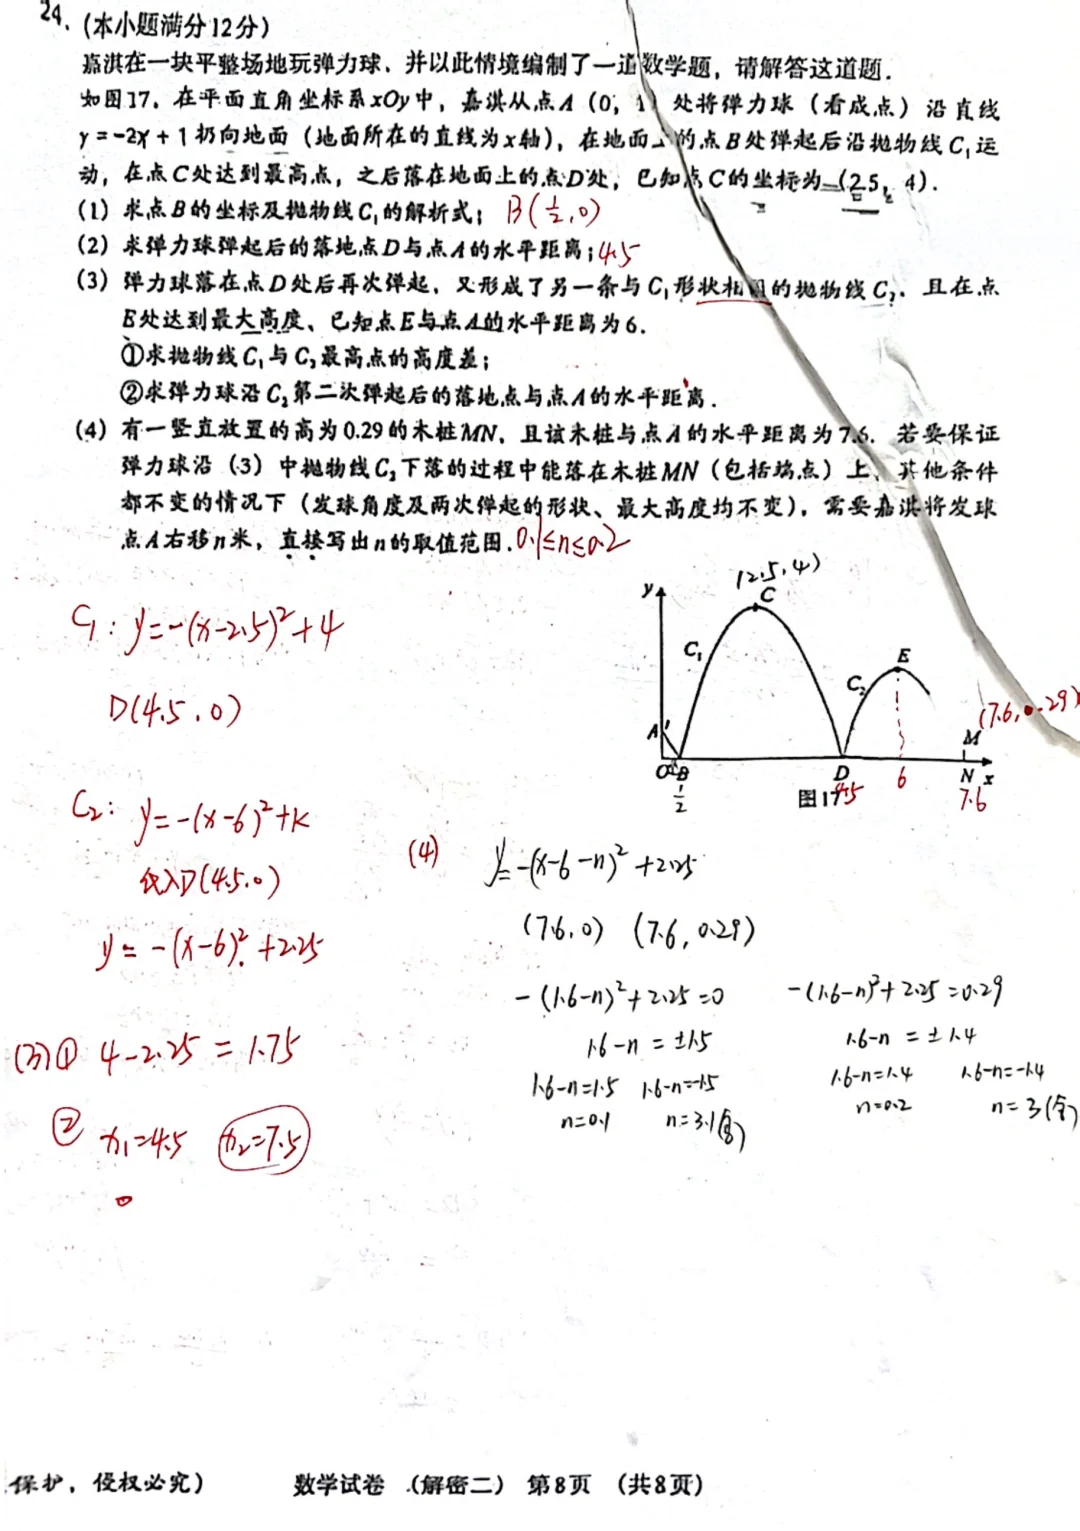 24.
(本小题满分12分)
嘉淇在一块平整场地玩弹力球,并以此情境编制了一道数学题,请解答这道题.
如图17,在平面直角坐标系xOy中,嘉淇从点A(0,1)处将弹力球(看成点)沿直线
y=-2x+1扔向地面(地面所在的直线为x轴),在地面上的点B处弹起后沿抛物线C₁运
动,在点C处达到最高点,之后落在地面上的点D处,已知点C的坐标为(2.5,4).
(1)求点B的坐标及抛物线C₁的解析式; B(½,0)
(2)求弹力球弹起后的落地点D与点A的水平距离;4.5
(3)弹力球落在点D处后再次弹起,又形成了另一条与C₁形状相同的抛物线C₂,且在点
E处达到最大高度、已知点E与点A的水平距离为6.
①求抛物线C₁与C₂最高点的高度差;
②求弹力球沿C₂第二次弹起后的落地点与点A的水平距离.
(4)有一竖直放置的高为0.29的木桩MN,且该木桩与点A的水平距离为7.6.若要保证
弹力球沿(3)中抛物线C₂下落的过程中能落在木桩MN(包括端点)上,其他条件
都不变的情况下(发球角度及两次弹起的形状、最大高度均不变),需要嘉淇将发球
点A右移n米,直接写出n的取值范围.0.1≤n≤0.2
C₁: y=-(x-2.5)²+4
D(4.5,0)
C₂: y=-(x-6)²+k
代入D(4.5,0)
y=-(x-6)²+2.25
(3)① 4-2.25=1.75
② x₁=4.5 x₂=7.5
y
(2.5,4)
C
C₁
E
C₂
(7.6,0.29)
A
M
O B D 6 N x
½ 图17 4.5 7.6
(4) y=-(x-6-n)²+2.25
(7.6,0) (7.6,0.29)
-(1.6-n)²+2.25=0 -(1.6-n)²+2.25=0.29
1.6-n=±1.5 1.6-n=±1.4
1.6-n=1.5 1.6-n=-1.5 1.6-n=1.4 1.6-n=-1.4
n=0.1 n=3.1(舍) n=0.2 n=3(舍)
保护,侵权必究) 数学试卷 (解密二) 第8页 (共8页)